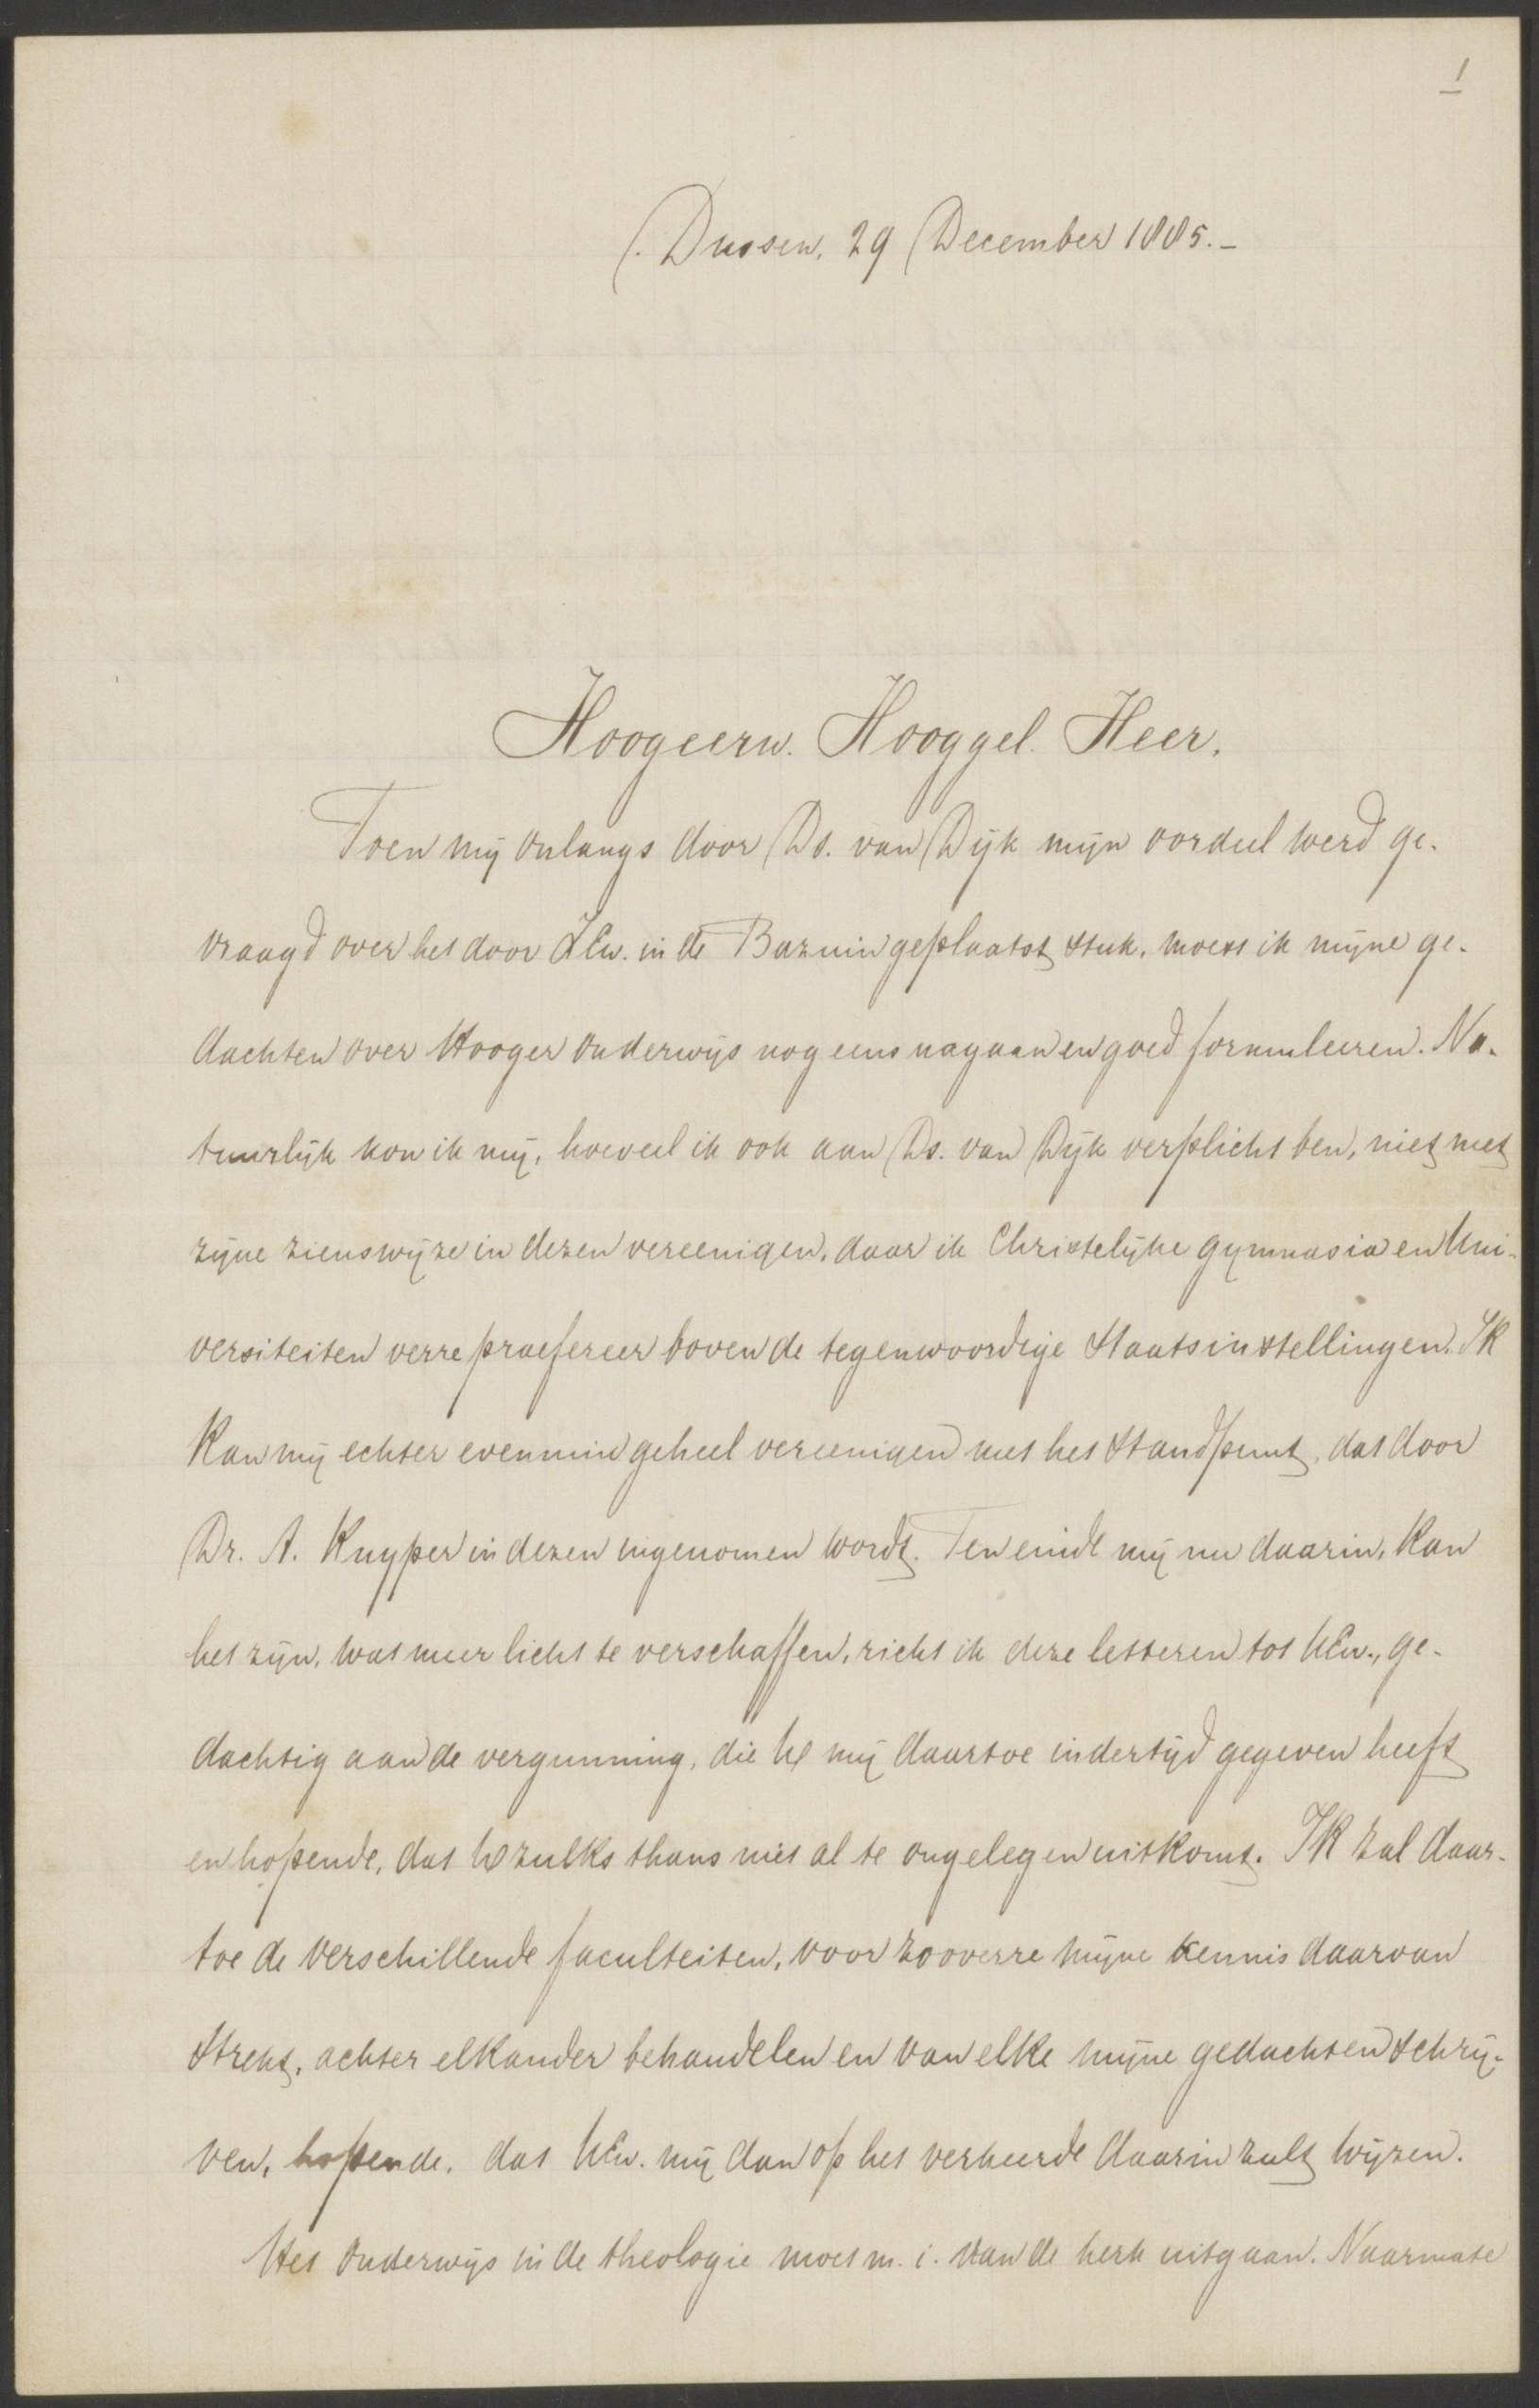 1
Dussen, 29 December 1885.-
Hoogeerw. Hooggel. Heer.
Toen mij onlangs door Ds. van Dijk mijn oordeel werd ge-
vraagd over het door ZEw. in de Bazuin geplaatst stuk, moest ik mijne ge-
dachten over Hooger Onderwijs nog eens nagaan en goed formuleeren. Na-
tuurlijk kon ik mij, hoeveel ik ook aan Ds. van Dijk verplicht ben, niet met
zijne zienswijze in dezen vereenigen, daar ik Christelijke gymnasia en Uni-
versiteiten verre praefereer boven de tegenwoordige Staatsinstellingen. Ik
kan mij echter evenmin geheel vereenigen met het standpunt, dat door
Dr. A. Kuyper in dezen ingenomen wordt. Ten einde mij nu daarin, kan
het zijn, wat meer licht te verschaffen, richt ik deze letteren tot UEw., ge-
dachtig aan de vergunning, die U mij daartoe indertijd gegeven heeft
en hopende, dat U zulks thans niet al te ongelegen uitkomt. Ik zal daar-
toe de verschillende faculteiten, voor zooverre mijne kennis daarvan
strekt, achter elkander behandelen en van elke mijne gedachten schrij-
ven, hopende, dat UEw. mij dan op het verkeerde daarin zult wijzen.
Het onderwijs in de theologie moet m. i. van de kerk uitgaan. Naarmate